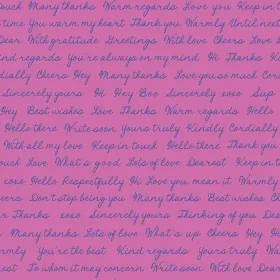 ouch Many thanks Warm regards Love you Keep in t
time You warm my heart Thank you Warmly Until next
Dear With gratitude Greetings With love Cheers Love
ind regards You're always on my mind Hi Thanks K
dially Cheers Hey Many thanks Love you so much Cor
Sincerely yours Hi Hey Boo Sincerely xoxo Sup
Hey Best wishes Love Thanks Warm regards Hello
Hello there Write soon Yours truly Kindly Cordially
With all my love Keep in touch Hello there Thank you
ouch Love What's good Lots of love Dearest Keep in t
xoxo Hello Respectfully Hi Love you, mean it Warmly
eers Don't stop being you Many thanks Best wishes Ch
r Thanks xoxo Sincerely yours Thinking of you Dea
Many thanks Lots of love What's up Cheers Hey H
rmly You're the best Kind regards Yours truly Wa
est To whom it may concern Write soon With love